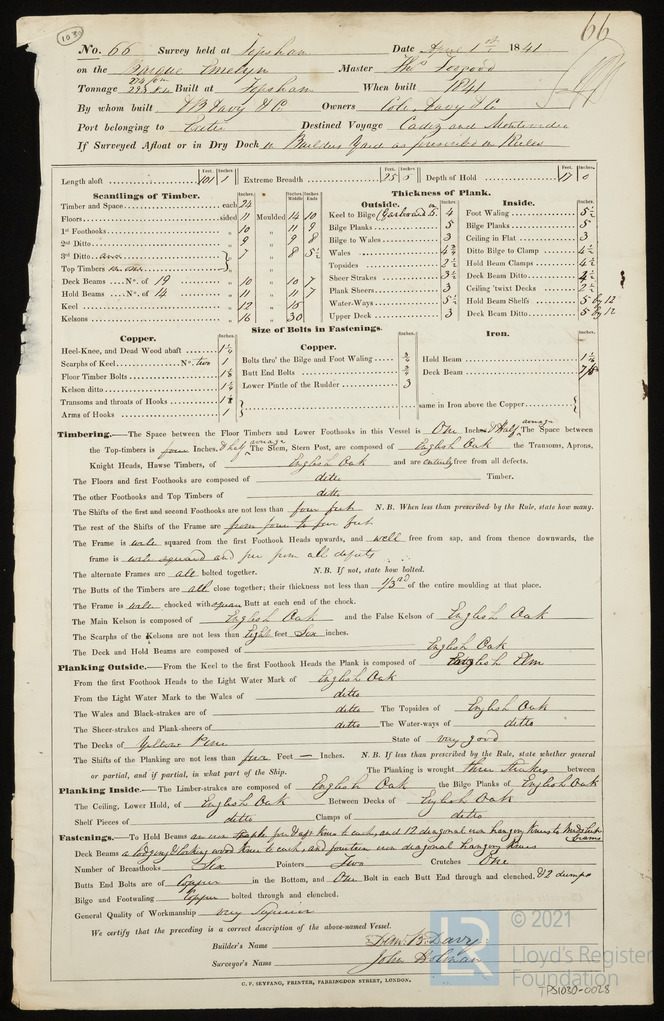 103
66
No. 66 Survey held at Topsham Date June 1st 1841
on the Barque Emelyn Master Thos Forgood
Tonnage Built at Topsham When built 1841
By whom built Davy & Co Owners Cole, Davy & Co
Port belonging to Exeter Destined Voyage Cadiz and Montevideo
If Surveyed Afloat or in Dry Dock in Builders Yard as prescribed in Rules
Length aloft Feet. 101 Inches. 1 Extreme Breadth Feet. 25 Inches. Depth of Hold Feet. 17 Inches. 0
Scantlings of Timber.
Timber and Space each 24
Floors sided 11 Moulded 14 10
1st Foothooks „ 10 „ 11 9
2nd Ditto „ 9 „ 9 8
3rd Ditto „ 7 „ 8 5½
Top Timbers
Deck Beams No. of 19 „ 10 „ 10 7
Hold Beams No. of 14 „ 11 „ 11 7
Keel „ 12 „ 15
Kelsons „ 16 „ 30
Thickness of Plank.
Outside. Inches.
Keel to Bilge 4
Bilge Planks 5
Bilge to Wales 3
Wales
Topsides
Sheer Strakes 3½
Plank Sheers 3
Water-Ways 5½
Upper Deck 3
Inside. Inches.
Foot Waling 5½
Bilge Planks 5
Ceiling in Flat 3
Ditto Bilge to Clamp 4½
Hold Beam Clamps 4½
Deck Beam Ditto 4½
Ceiling 'twixt Decks 2½
Hold Beam Shelfs 5 by 12
Deck Beam Ditto 5 by 12
Size of Bolts in Fastenings.
Copper. Inches.
Heel-Knee, and Dead Wood abaft 1¼
Scarphs of Keel No. two 1
Floor Timber Bolts 1⅛
Kelson ditto 1¼
Transoms and throats of Hooks 1⅛
Arms of Hooks 1
Copper. Inches.
Bolts thro' the Bilge and Foot Waling ¾
Butt End Bolts ¾
Lower Pintle of the Rudder 3
Iron. Inches.
Hold Beam
Deck Beam
same in Iron above the Copper
Timbering.—The Space between the Floor Timbers and Lower Foothooks in this Vessel is One Inches & Half average The Space between
the Top-timbers is four Inches & half average The Stem, Stern Post, are composed of English Oak the Transoms, Aprons,
Knight Heads, Hawse Timbers, of English Oak and are entirely free from all defects.
The Floors and first Foothooks are composed of ditto Timber.
The other Foothooks and Top Timbers of ditto
The Shifts of the first and second Foothooks are not less than four feet N.B. When less than prescribed by the Rule, state how many.
The rest of the Shifts of the Frame are from four to five feet
The Frame is well squared from the first Foothook Heads upwards, and well free from sap, and from thence downwards, the
frame is well squared and free from all defects
The alternate Frames are all bolted together. N.B. If not, state how bolted.
The Butts of the Timbers are all close together; their thickness not less than 1/3rd of the entire moulding at that place.
The Frame is well chocked with square Butt at each end of the chock.
The Main Kelson is composed of English Oak and the False Kelson of English Oak
The Scarphs of the Kelsons are not less than Eight feet Six inches.
The Deck and Hold Beams are composed of English Oak
Planking Outside.—From the Keel to the first Foothook Heads the Plank is composed of English Elm
From the first Foothook Heads to the Light Water Mark of English Oak
From the Light Water Mark to the Wales of ditto
The Wales and Black-strakes are of ditto The Topsides of English Oak
The Sheer-strakes and Plank-sheers of ditto The Water-ways of ditto
The Decks of Yellow Pine State of very good
The Shifts of the Planking are not less than five Feet — Inches. N.B. If less than prescribed by the Rule, state whether general
or partial, and if partial, in what part of the Ship. The Planking is wrought three strakes between
Planking Inside.—The Limber-strakes are composed of English Oak the Bilge Planks of English Oak
The Ceiling, Lower Hold, of English Oak Between Decks of English Oak
Shelf Pieces of ditto Clamps of ditto
Fastenings.—To Hold Beams an iron knees to each, and 12 diagonal iron hanging knees to Midship beams
Deck Beams a lodging & wood knee to each, and fourteen iron diagonal hanging knees
Number of Breasthooks Six Pointers Two Crutches One
Butts End Bolts are of Copper in the Bottom, and One Bolt in each Butt End through and clenched. & 2 dumps
Bilge and Footwaling Copper bolted through and clenched.
General Quality of Workmanship very Superior
We certify that the preceding is a correct description of the above-named Vessel.
Builder's Name B. Davy
Surveyor's Name John Holman
C. F. SEYFANG, PRINTER, FARRINGDON STREET, LONDON.
LR © 2021
Lloyd's Register
Foundation
TPS1030-0028